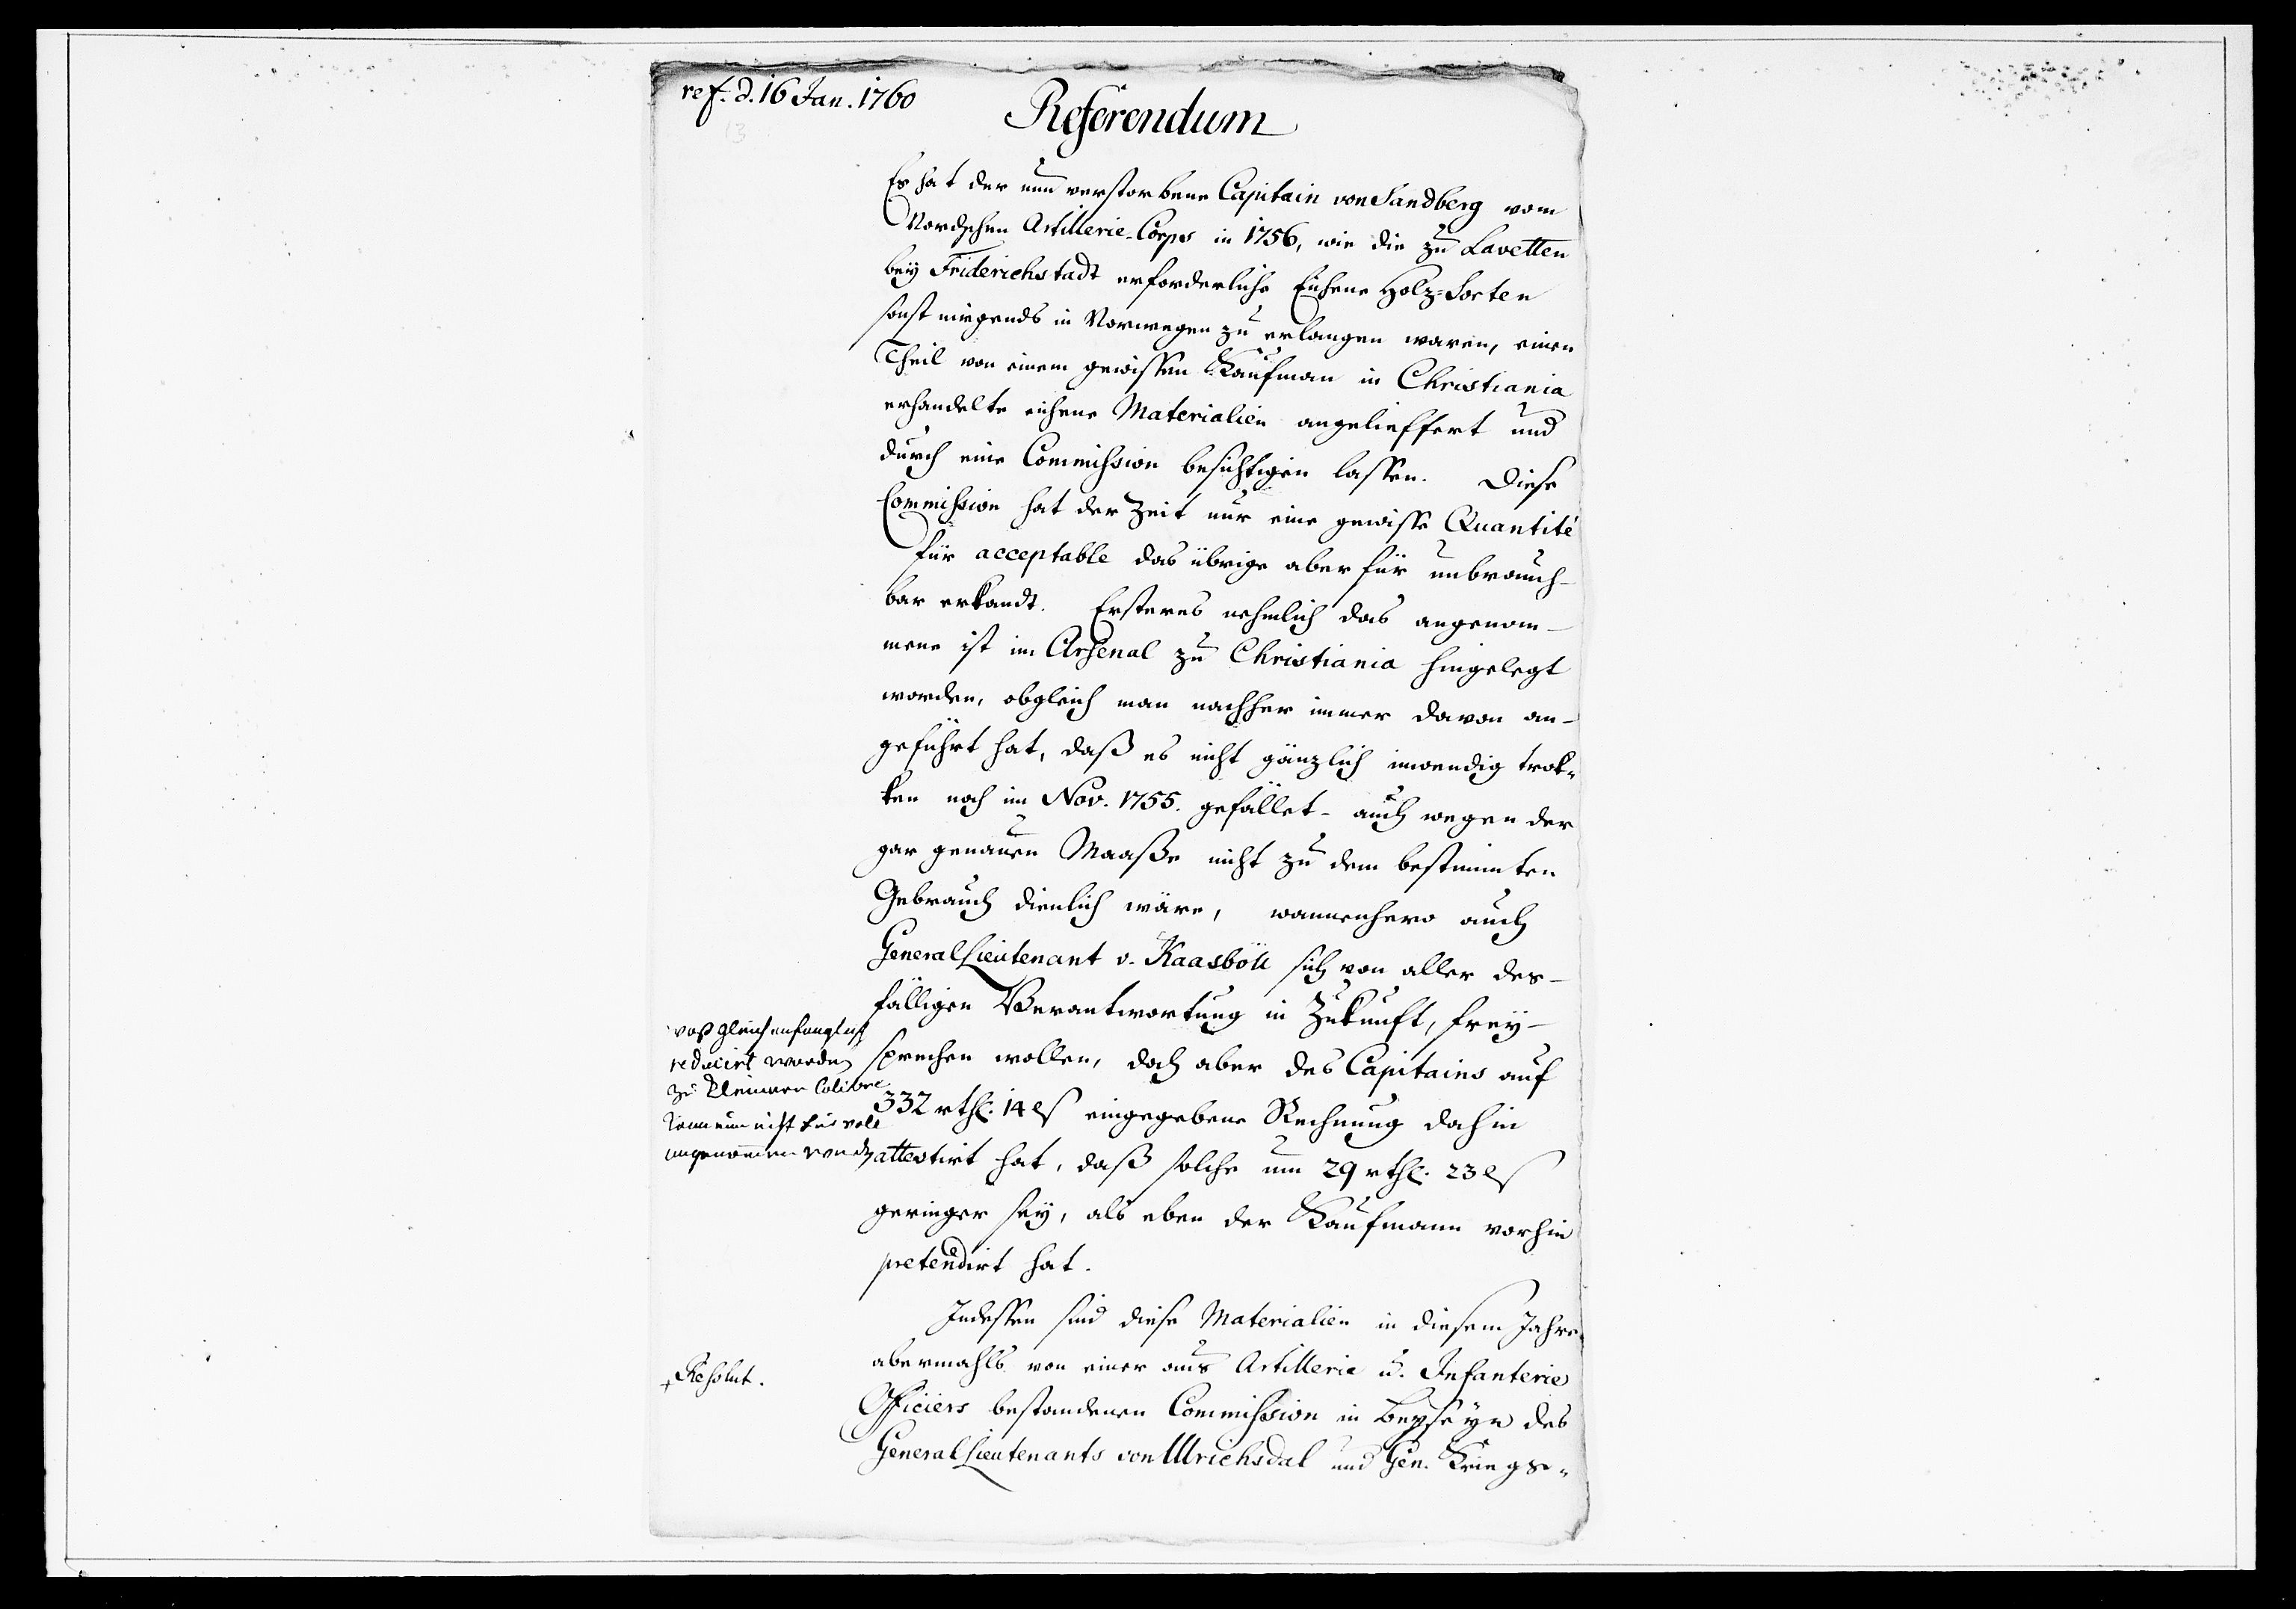 ref. d. 16 Jan. 1760
Referendum
Es hat der nun verstorbene Capitain von Sandberg vom
Nordschen Artillerie-Corps in 1756, wie die zu Lavetten
bey Friderichstadt erforderliche Eichene Holz-Sorten
sonst nirgends in Norwegen zu erlangen waren, einen
Theil von einem gewissen Kaufman in Christiania
erhandelte eichene Materialien angelieffert und
durch eine Commission besichtigen lassen. Diese
Commission hat der Zeit nur eine gewisse Quantité
für acceptable das übrige aber für unbrauch-
bar erkandt. Ersteres nehmlich das angenom-
mene ist im Arsenal zu Christiania hingelegt
worden, obgleich man nachher immer davon an-
geführt hat, daß es nicht gänzlich inwendig trok-
ken noch im Nov. 1755. gefället- auch wegen der
gar genauen Maaße nicht zu dem bestimmten
Gebrauch dienlich wäre, wannenhero auch
General Lieutenant v. Kaasböll sich von aller des-
fälligen Verantwortung in Zukunft, frey-
sprechen wollen, doch aber des Capitains auf
332 rthl. 14 ß eingegebene Rechnung dahin
attestirt hat, daß solche um 29 rthl. 23 ß
geringer sey, als eben der Kaufmann vorhin
pretendirt hat.
reducirt worden
zu kleinern Calibre
kann nun nicht für voll
angenommen werden
Indessen sind diese Materialien in diesem Jahre
abermahls von einer aus Artillerie u. Infanterie
Officiers bestandenen Commission in Beyseyn des
General Lieutenants von Ulrichsdal und Gen. Kriegs-
Resolut.